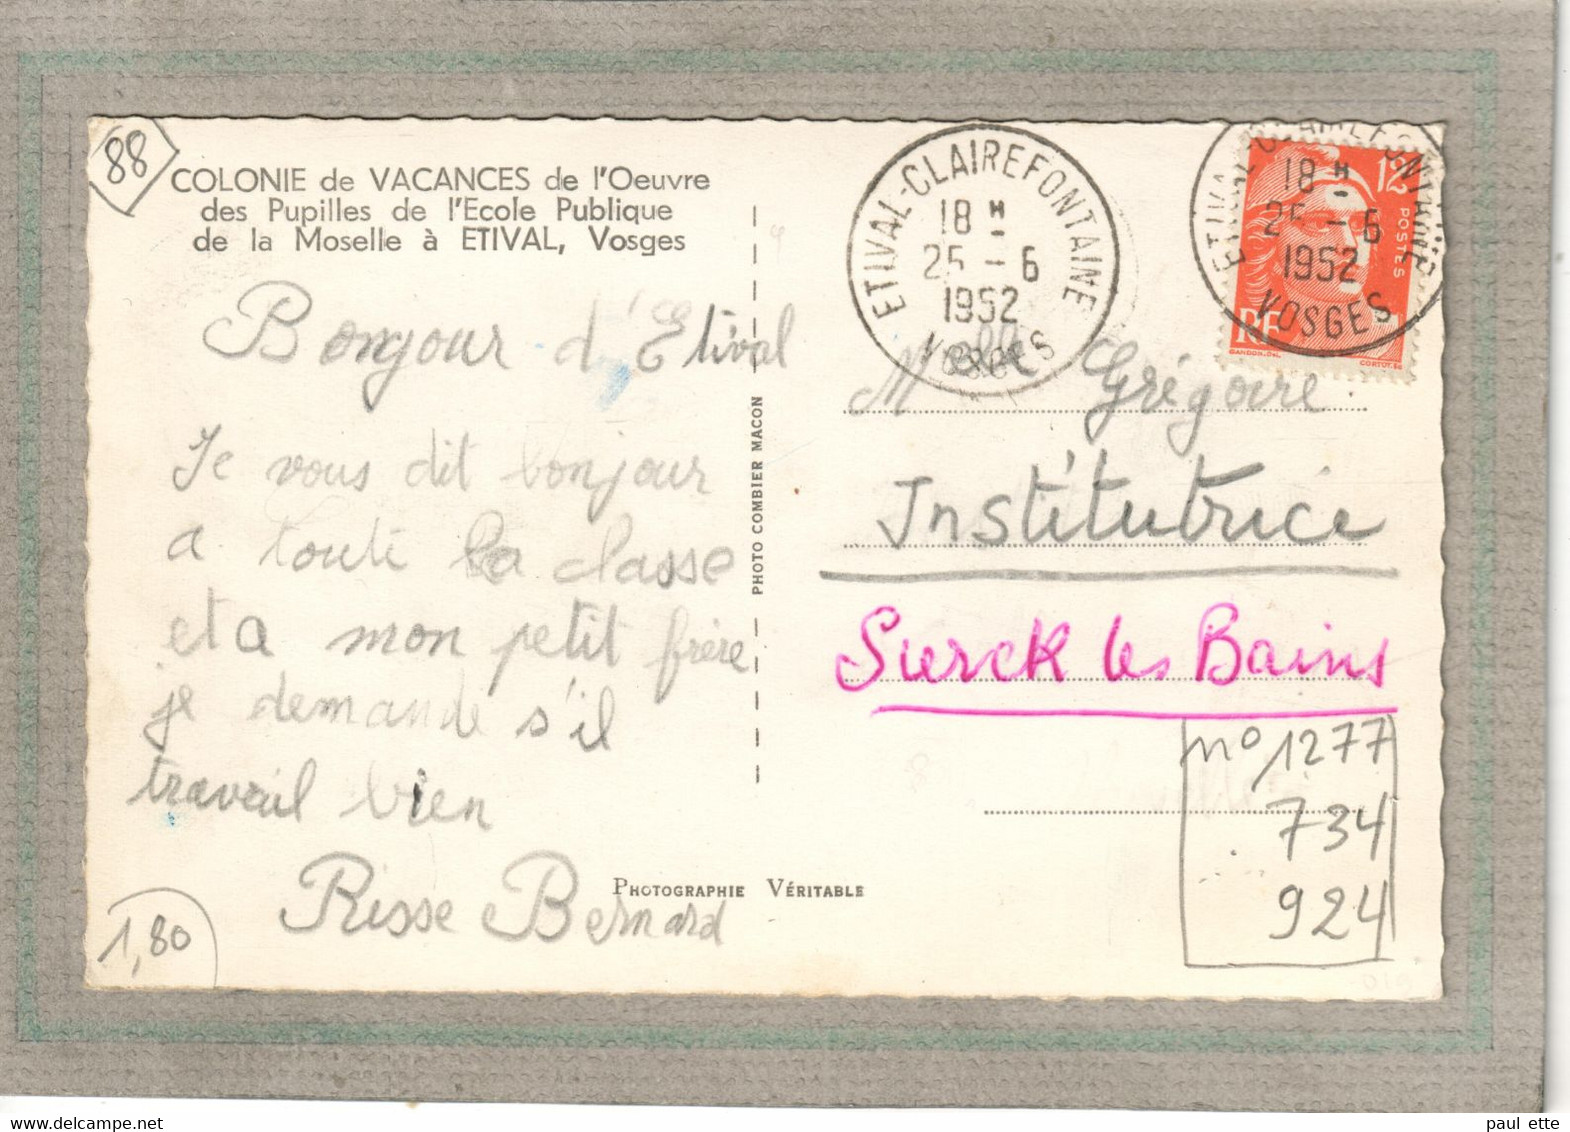 88
COLONIE de VACANCES de l'Oeuvre
des Pupilles de l'Ecole Publique
de la Moselle à ETIVAL, Vosges
Bonjour d'Etival
Je vous dit bonjour
a toute la classe
et a mon petit frère
je demande s'il
travail bien
Risse Bernard
1,80
PHOTO COMBIER MACON
PHOTOGRAPHIE VÉRITABLE
ETIVAL-CLAIREFONTAINE
18 H
25 - 6
1952
VOSGES
ETIVAL-CLAIREFONTAINE
18 H
25 - 6
1952
VOSGES
12
POSTES
RF
GANDON.DEL
CORTOT.SC
Melle Grégoire
Institutrice
Sierck les Bains
n° 1277
734
924
paul ette